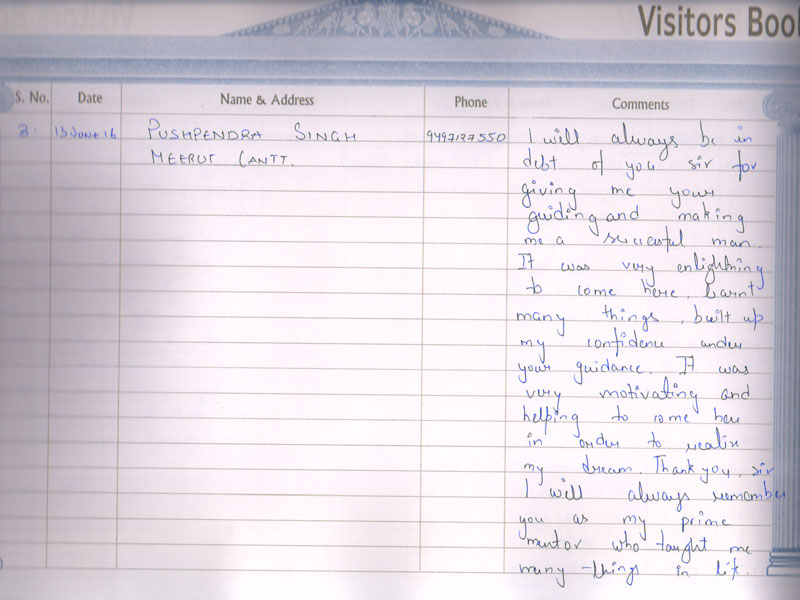 Visitors Boo
S. No. Date Name & Address Phone Comments
3. 13 JUNE 16 PUSHPENDRA SINGH 9497127550 I will always be in
MEERUT CANTT. debt of you sir for
giving me your
guiding and making
me a successful man.
It was very enlightning
to come here, learnt
many things, built up
my confidence under
your guidance. It was
very motivating and
helping to come here
in order to realize
my dream. Thank you, sir
I will always remember
you as my prime
mentor who taught me
many things in life.